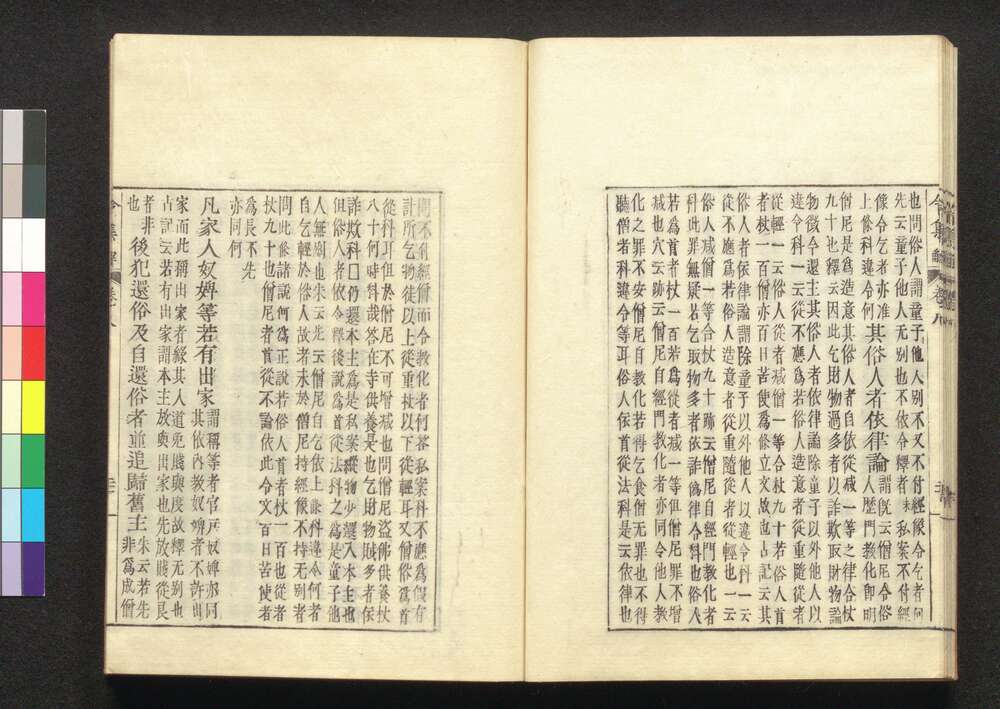 也問俗人謂童子他人別不又不付經像令乞者何
先云童子他人无別也不依令釋者朱私案不付經
像令乞者亦准其俗人者依律論謂既云僧尼令俗
上條科違令何人歷門教化卽明
僧尼是爲造意其俗人者自依從減一等之律合杖
九十也釋云因此乞財物過多者以詐欺取財物論
物徵令還主其俗人者依律論除童子以外他人以
違令科一云從不應爲若俗人造意者從重隨從者
從輕一云俗人從者減僧一等合杖九十若俗人首
者杖一百僧亦百日苦使爲條立文故也古記云其
俗人者依律論謂除童子以外他人以違令科一云
從不應爲若俗人造意者從重隨從者從輕也一云
俗人減僧一等合杖九十跡云僧尼自經門教化者
科此罪無疑若乞取物多者依詐僞律令科也俗人
若爲首者杖一百若爲從者減一等但僧尼罪不增
減也穴云跡云僧尼自經門教化者亦同令他人教
化之罪不安僧尼自教化若得乞食僧无罪也不得
聽僧者科違令等耳俗人作首從法科是一云依律也
問不付經僧而令教化者何答私案科不應爲但有
計所乞物徒以上從重杖以下從輕耳又僧俗爲首
從科耳但於僧尼不可增減也問僧尼盜佛供養杖
八十何時科哉答在寺供養是也乞財物贓多者依
詐欺科□仍還本主爲是私案縱物少還入本主也
但俗人者依令釋後說爲首從法科之爲是童子他
人無別也朱云先云僧尼自乞依上條科違令何者
自乞輕於俗人故者未於僧尼持經像不持无別者
問此條諸說何爲正說若俗人首者杖一百也從者
杖九十也僧尼者首從不論依此令文百日苦使者
爲長不先
亦同何
凡家人奴婢等若有出家謂稱等者官戶奴婢亦同
其依內教奴婢者不許出
家而此稱出家者緣其人道免賤與度故釋无別也
古記云若有出家謂本主放奧出家也先放賤從良
者非後犯還俗及自還俗者並追歸舊主朱云若先
也非爲成僧
令集解 卷八